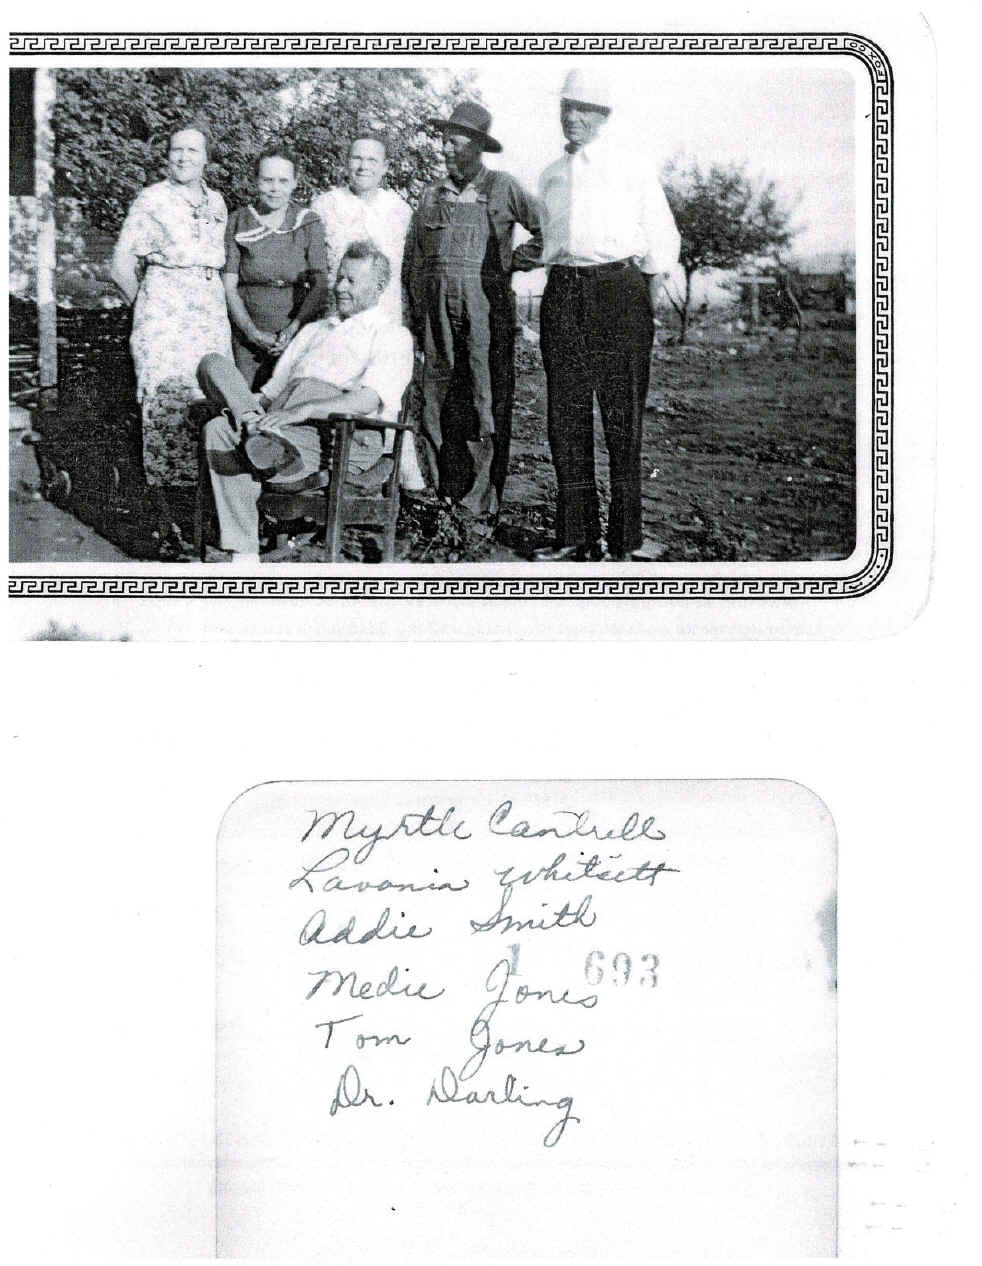 FOX CO
Myrtle Cantrell
Lavonia Whitsett
Addie Smith
1 693
Medie Jones
Tom Jones
Dr. Darling